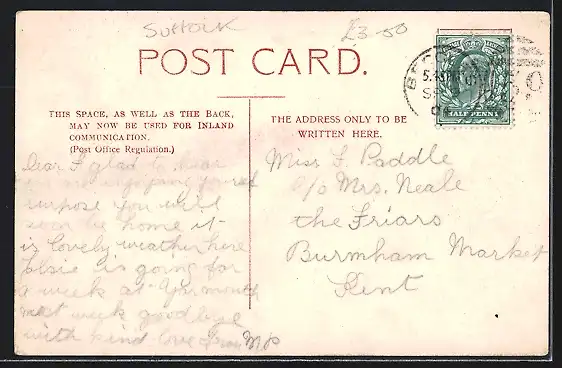 Suffolk £3-50
POST CARD.
THIS SPACE, AS WELL AS THE BACK,
MAY NOW BE USED FOR INLAND
COMMUNICATION.
(Post Office Regulation.)
THE ADDRESS ONLY TO BE
WRITTEN HERE.
HALF PENNY
Dear F glad to hear
you are enjoying yourself
surpose you will
soon be home it
is lovely weather here
Elsie is going for
a week at Yarmouth
next week goodbye
with kind love from M P
Miss F. Paddle
c/o Mrs. Neale
the Friars
Burmham Market
Kent